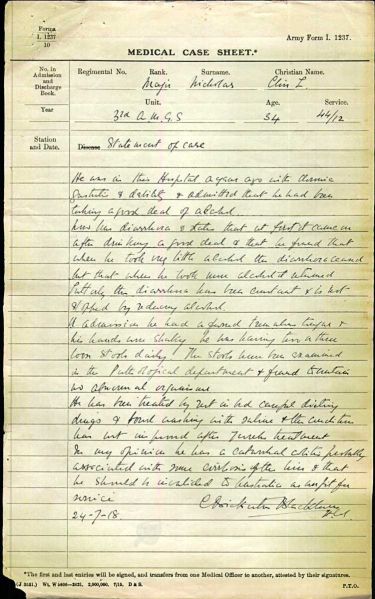 Forms
I. 1237
10
Army Form I. 1237.
MEDICAL CASE SHEET.*
No. in Admission and Discharge Book.
Regimental No. Rank. Surname. Christian Name.
Major Nicholas L
Year
Unit. Age. Service.
3rd A. 34
Station and Date.
Disease Statement of case
He was in this Hospital a year ago with chronic
gastritis & debility & admitted that he had been
taking a good deal of alcohol.
has diarrhoea & states that at first it came on
after drinking a good deal & that he found that
when he took very little alcohol the diarrhoea ceased
but that when he took more alcohol it returned
the diarrhoea has been constant & is not
stopped by reducing alcohol.
admission he had a furred tremulous tongue &
his hands were shaky he was having two or three
loose stools daily. The stools have been examined
in the Pathological department & found to contain
no abnormal organisms
He has been treated by rest in bed careful dieting
drugs & bowel washing with saline & the condition
has not improved after treatment
In my opinion he has a catarrhal colitis probably
associated with some cirrhosis of the liver & that
he should be invalided to Australia as unfit for
service
24-7-18 Blackburn
*The first and last entries will be signed, and transfers from one Medical Officer to another, attested by their signatures.
Wt. 2,000,000. 7/15. D & S.
P.T.O.